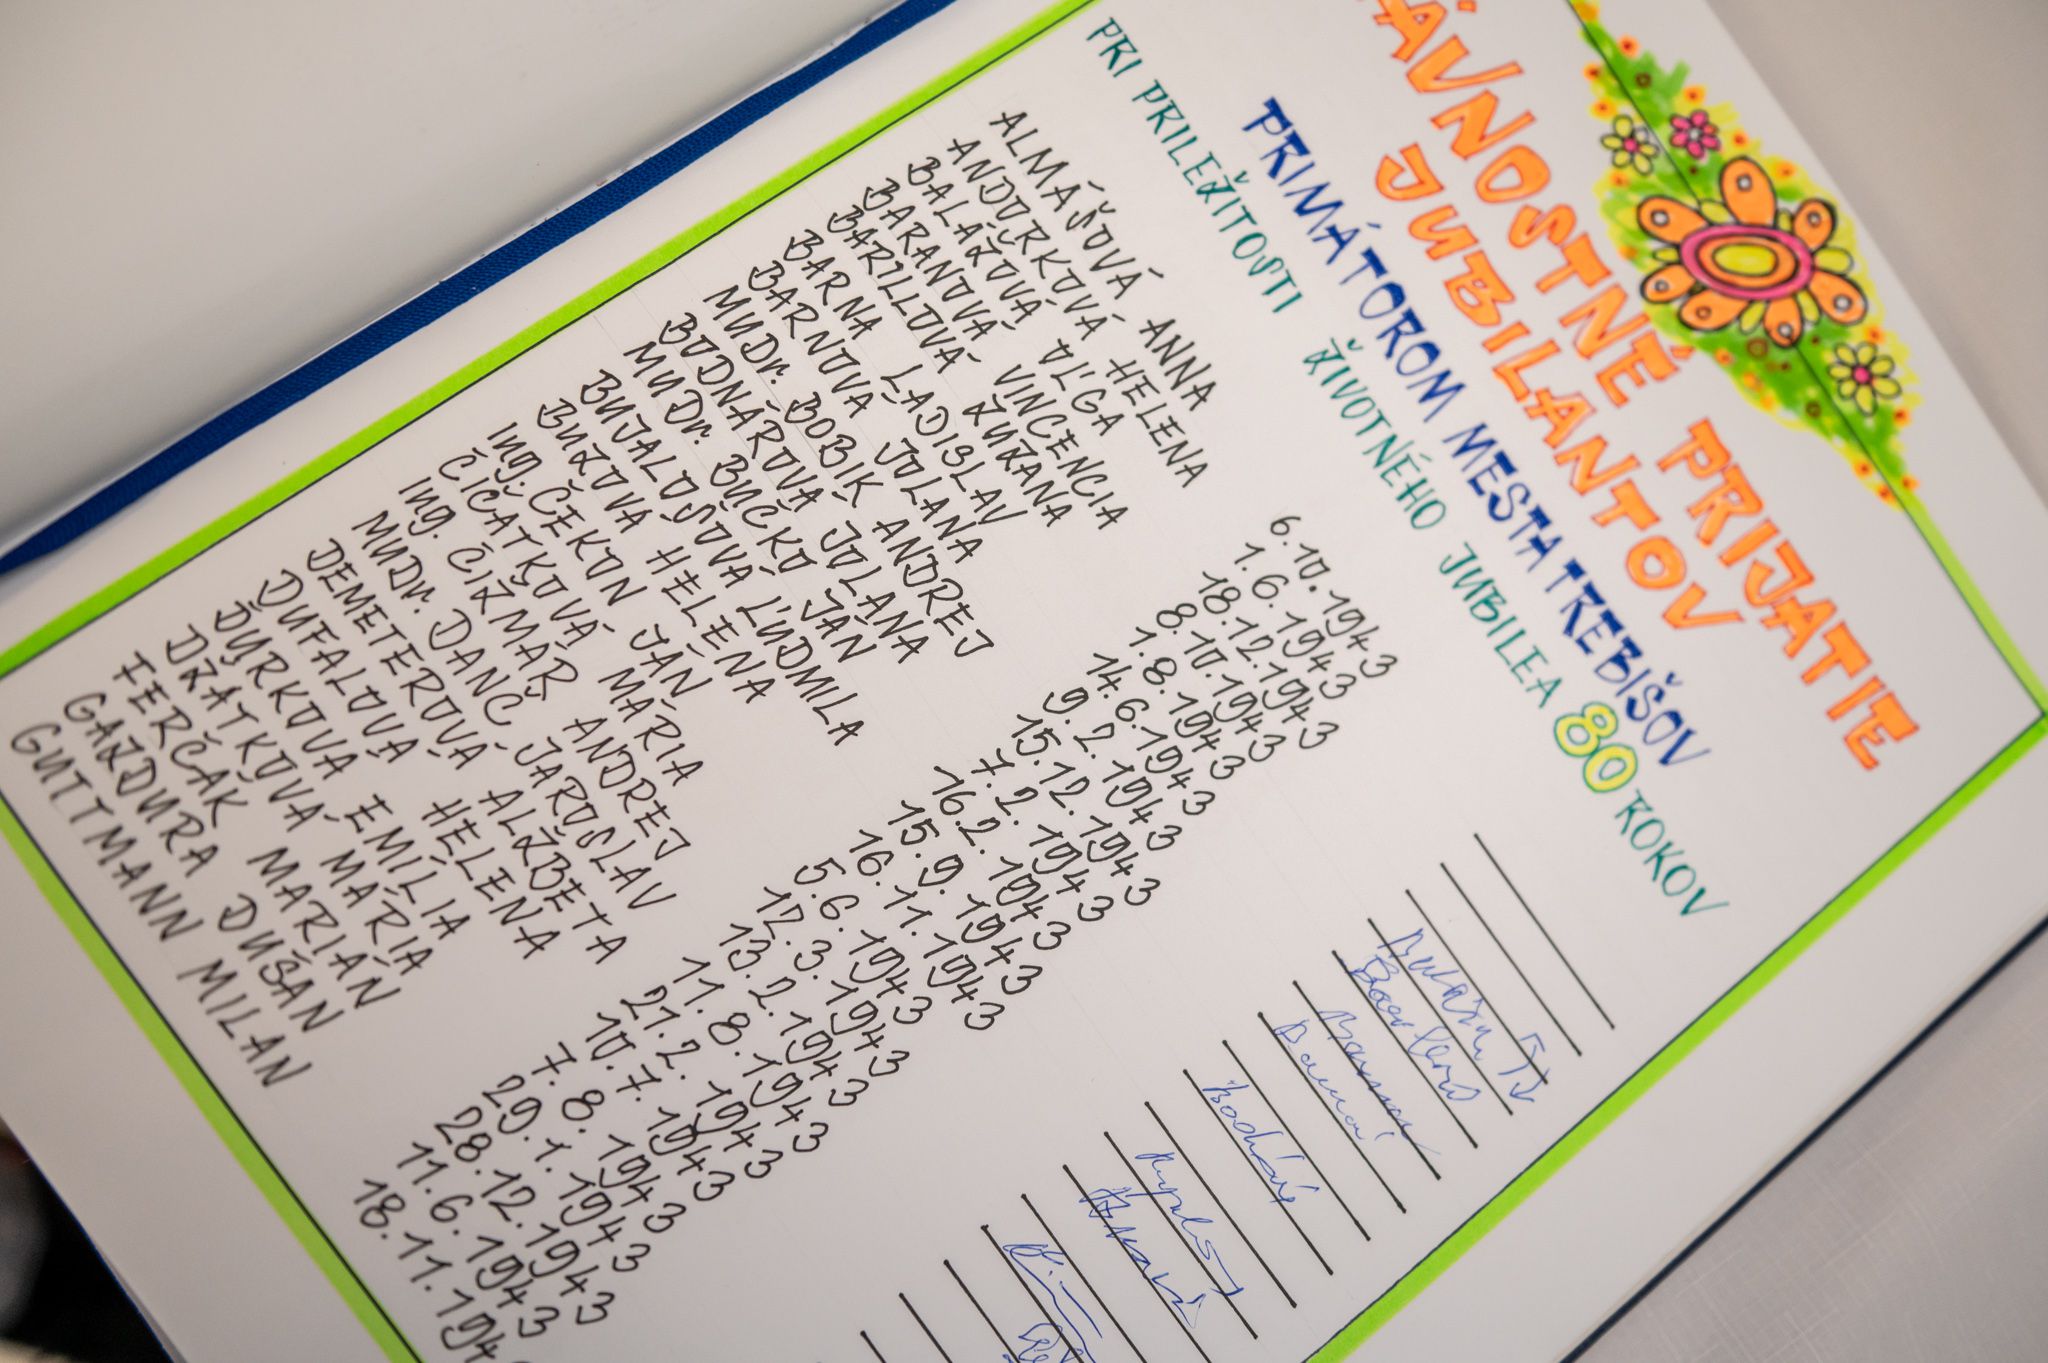 ÁVNOSTNÉ PRIJATIE
JUBILANTOV
PRIMÁTOROM MESTA TREBIŠOV
PRI PRILEŽITOSTI ŽIVOTNÉHO JUBILEA 80 ROKOV
ALMÁŠOVÁ ANNA 6.10.1943
ANDORKOVÁ HELENA 1.6.1943
BALÁŽOVÁ OĽGA 18.12.1943
BARANOVÁ VINCENCIA 8.10.1943
BARILLOVÁ ZUZANA 1.8.1943
BARNA LADISLAV 14.6.1943
BARNOVÁ JOLANA 9.2.1943
MUDr. BOBIK ANDREJ 15.12.1943
BODNÁROVÁ JOLANA 7.2.1943
MUDr. BUČKO JÁN 16.2.1943
BUJALOSOVÁ ĽUDMILA 15.9.1943
BUZOVÁ HELENA 16.11.1943
Ing. ČEKON JÁN 5.6.1943
ČIČATKOVÁ MÁRIA 12.3.1943
Ing. ČIŽMÁR ANDREJ 13.2.1943
MUDr. DANČ JAROSLAV 11.8.1943
DEMETEROVÁ ALŽBETA 21.2.1943
DUFALOVÁ HELENA 10.7.1943
ĎURKOVÁ EMÍLIA 7.8.1943
DZÁTKOVÁ MÁRIA 29.1.1943
FERČÁK MARIÁN 28.12.1943
GAZDURA DUŠAN 11.6.1943
GUTTMANN MILAN 18.11.194